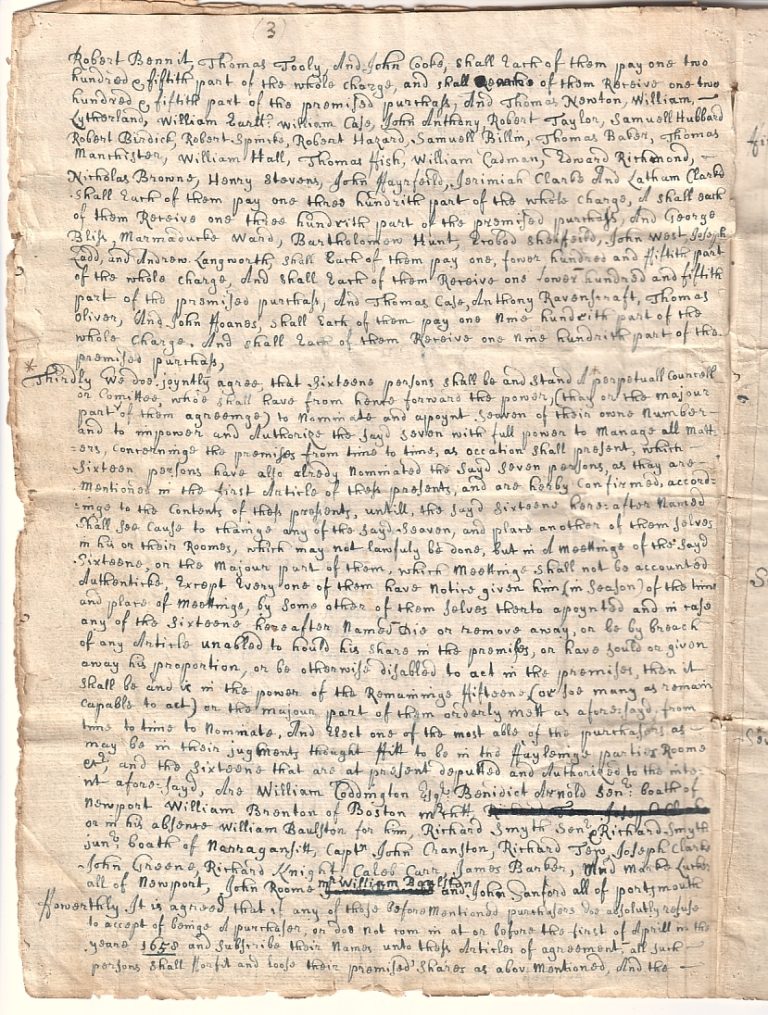 (3)
Robert Bennit, Thomas Tooly, And John Cooke, shall Each of them pay one two
hundred & fiftith part of the whole Charge, and shall of them Receive one two
hundred & fiftith part of the premised purchass, And Thomas Newton, William,
Lytherland, William Earll? William Case, John Anthony, Robert Taylor, Samuell Hubbard
Robert Birdick, Robert Spinike, Robert Hazard, Samuell Billin, Thomas Baker, Thomas
Manchister, William Hall, Thomas Fish, William Cadman, Edward Richmond,
Nicholas Browne, Henry Stevens, John Hayrfeild, Jerimiah Clarke And Latham Clarke
Shall Each of them pay one three hundrith part of the whole Charge, & shall each
of them Receive one three hundrith part of the premised purchass, And George
Bliss, Marmaduke Ward, Bartholomew Hunt, Sheafeild, John West, Joseph
Ladd, and Andrew Langworth, shall Each of them pay one, fower hundred and fiftith part
of the whole Charge, And shall Each of them Receive one fower hundred and fiftith
part of the premised purchass, And Thomas Case, Anthony Ravenscraft, Thomas
Oliver, And John Hoanes, shall Each of them pay one Nine hundrith part of the
whole Charge, And shall Each of them Receive one Nine hundrith part of the
premised purchass,
* Thirdly We doe joyntly agree, that Sixteene persons shall be and Stand A perpetuall Councell
or Comittee, whoe shall have from hence forward the power, (thay or the majour
part of them agreeinge) to Nominate and appoynt Seaven of their owne Number
and to impower and Authorize the Sayd Seven with full power to Manage all Matt-
=ers, Concerninge the premises from time to time, as occation shall present, which
Sixteen persons have also alredy Nominated the Sayd Seven persons, as thay are
Mentioned in the first Article of thess presents, and are herby Confirmed, accord=
=inge to the Contents of thess presents, untill, the Sayd Sixteene here=after Named
Shall See Cause to chainge any of the Sayd Seaven, and place another of them selves
in his or their Roomes, which may not lawfuly be done, but in A Meetinge of the Sayd
Sixteene, or the Majour part of them, which Meettinge shall not be accounted
Authenticke, Except Every one of them have Notice given him (in Season) of the time
and place of Meettinge, by Some other of them selves therto apoynted and in case
any of the Sixteene hereafter Named Die or remove away, or be by breach
of any Article unabled to hould his share in the premises, or have sould or given
away his proportion, or be otherwise disabled to act in the premises, then it
shall be and is in the power of the Remaininge fifteene (or Soe many as remain
Capable to act) or the majour part of them orderly mett as afore=sayd, from
time to time to Nominate, And Elect one of the most able of the purchasers as
may be in their jugments thought fitt to be in the fayleinge parties Roome
&c; and the Sixteene that are at present deputted and Authorized to the inte=
nt afore=sayd, Are William Coddington Esqr. Benidict Arnold Senr. boath of
Newport William Brenton of Boston
or in his absence William Baulston for him, Richard Smyth Senr. & Richard Smyth
junr. boath of Narragansitt, Captn. John Cranston, Richard Tew, Joseph Clarke
John Greene, Richard Knight, Caleb Carr, James Barker, And Marke Lucker
all of Newport, John Roome mr William Baulston and John Sanford all of portsmouth
Fowerthly. It is agreed that if any of those before Mentioned purchasers doe absolutly refuse
to accept of beinge A purchaser, or doe not com in at or before the first of Aprill in the
yeare 1658 and Subscribe their Names unto thess Articles of agreement all such
persons shall forfit and loose their premised Shares as abov Mentioned, And the